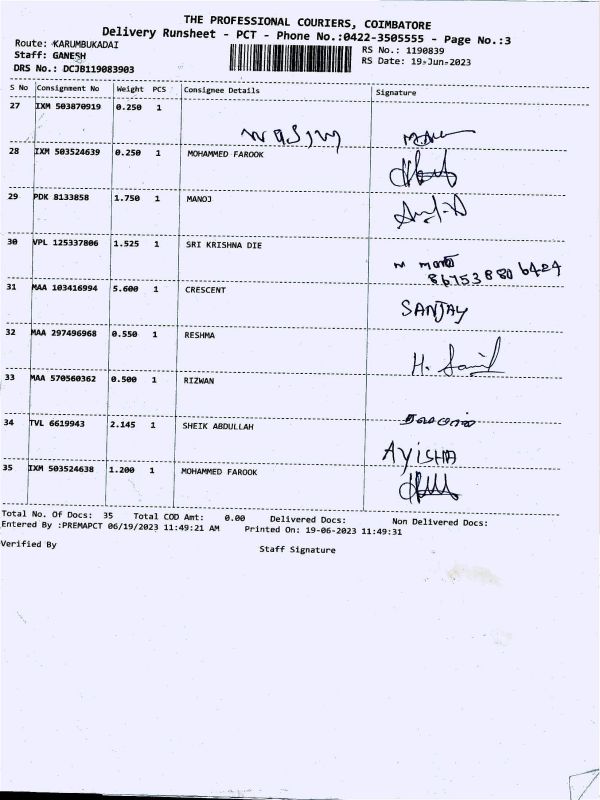 THE PROFESSIONAL COURIERS, COIMBATORE
Delivery Runsheet - PCT - Phone No.:0422-3505555 - Page No.:3
Route: KARUMBUKADAI
RS No.: 1190839
Staff: GANESH
RS Date: 19-Jun-2023
DRS No.: DCJB119083903
S No Consignment No Weight PCS Consignee Details Signature
27 IXM 503870919 0.250 1
28 IXM 503524639 0.250 1 MOHAMMED FAROOK
29 PDK 8133858 1.750 1 MANOJ
30 VPL 125337806 1.525 1 SRI KRISHNA DIE
31 MAA 103416994 5.600 1 CRESCENT
SANJAY
32 MAA 297496968 0.550 1 RESHMA
33 MAA 570560362 0.500 1 RIZWAN
34 TVL 6619943 2.145 1 SHEIK ABDULLAH
AYISHA
35 IXM 503524638 1.200 1 MOHAMMED FAROOK
Total No. Of Docs: 35 Total COD Amt: 0.00 Delivered Docs: Non Delivered Docs:
Entered By :PREMAPCT 06/19/2023 11:49:21 AM Printed On: 19-06-2023 11:49:31
Verified By
Staff Signature